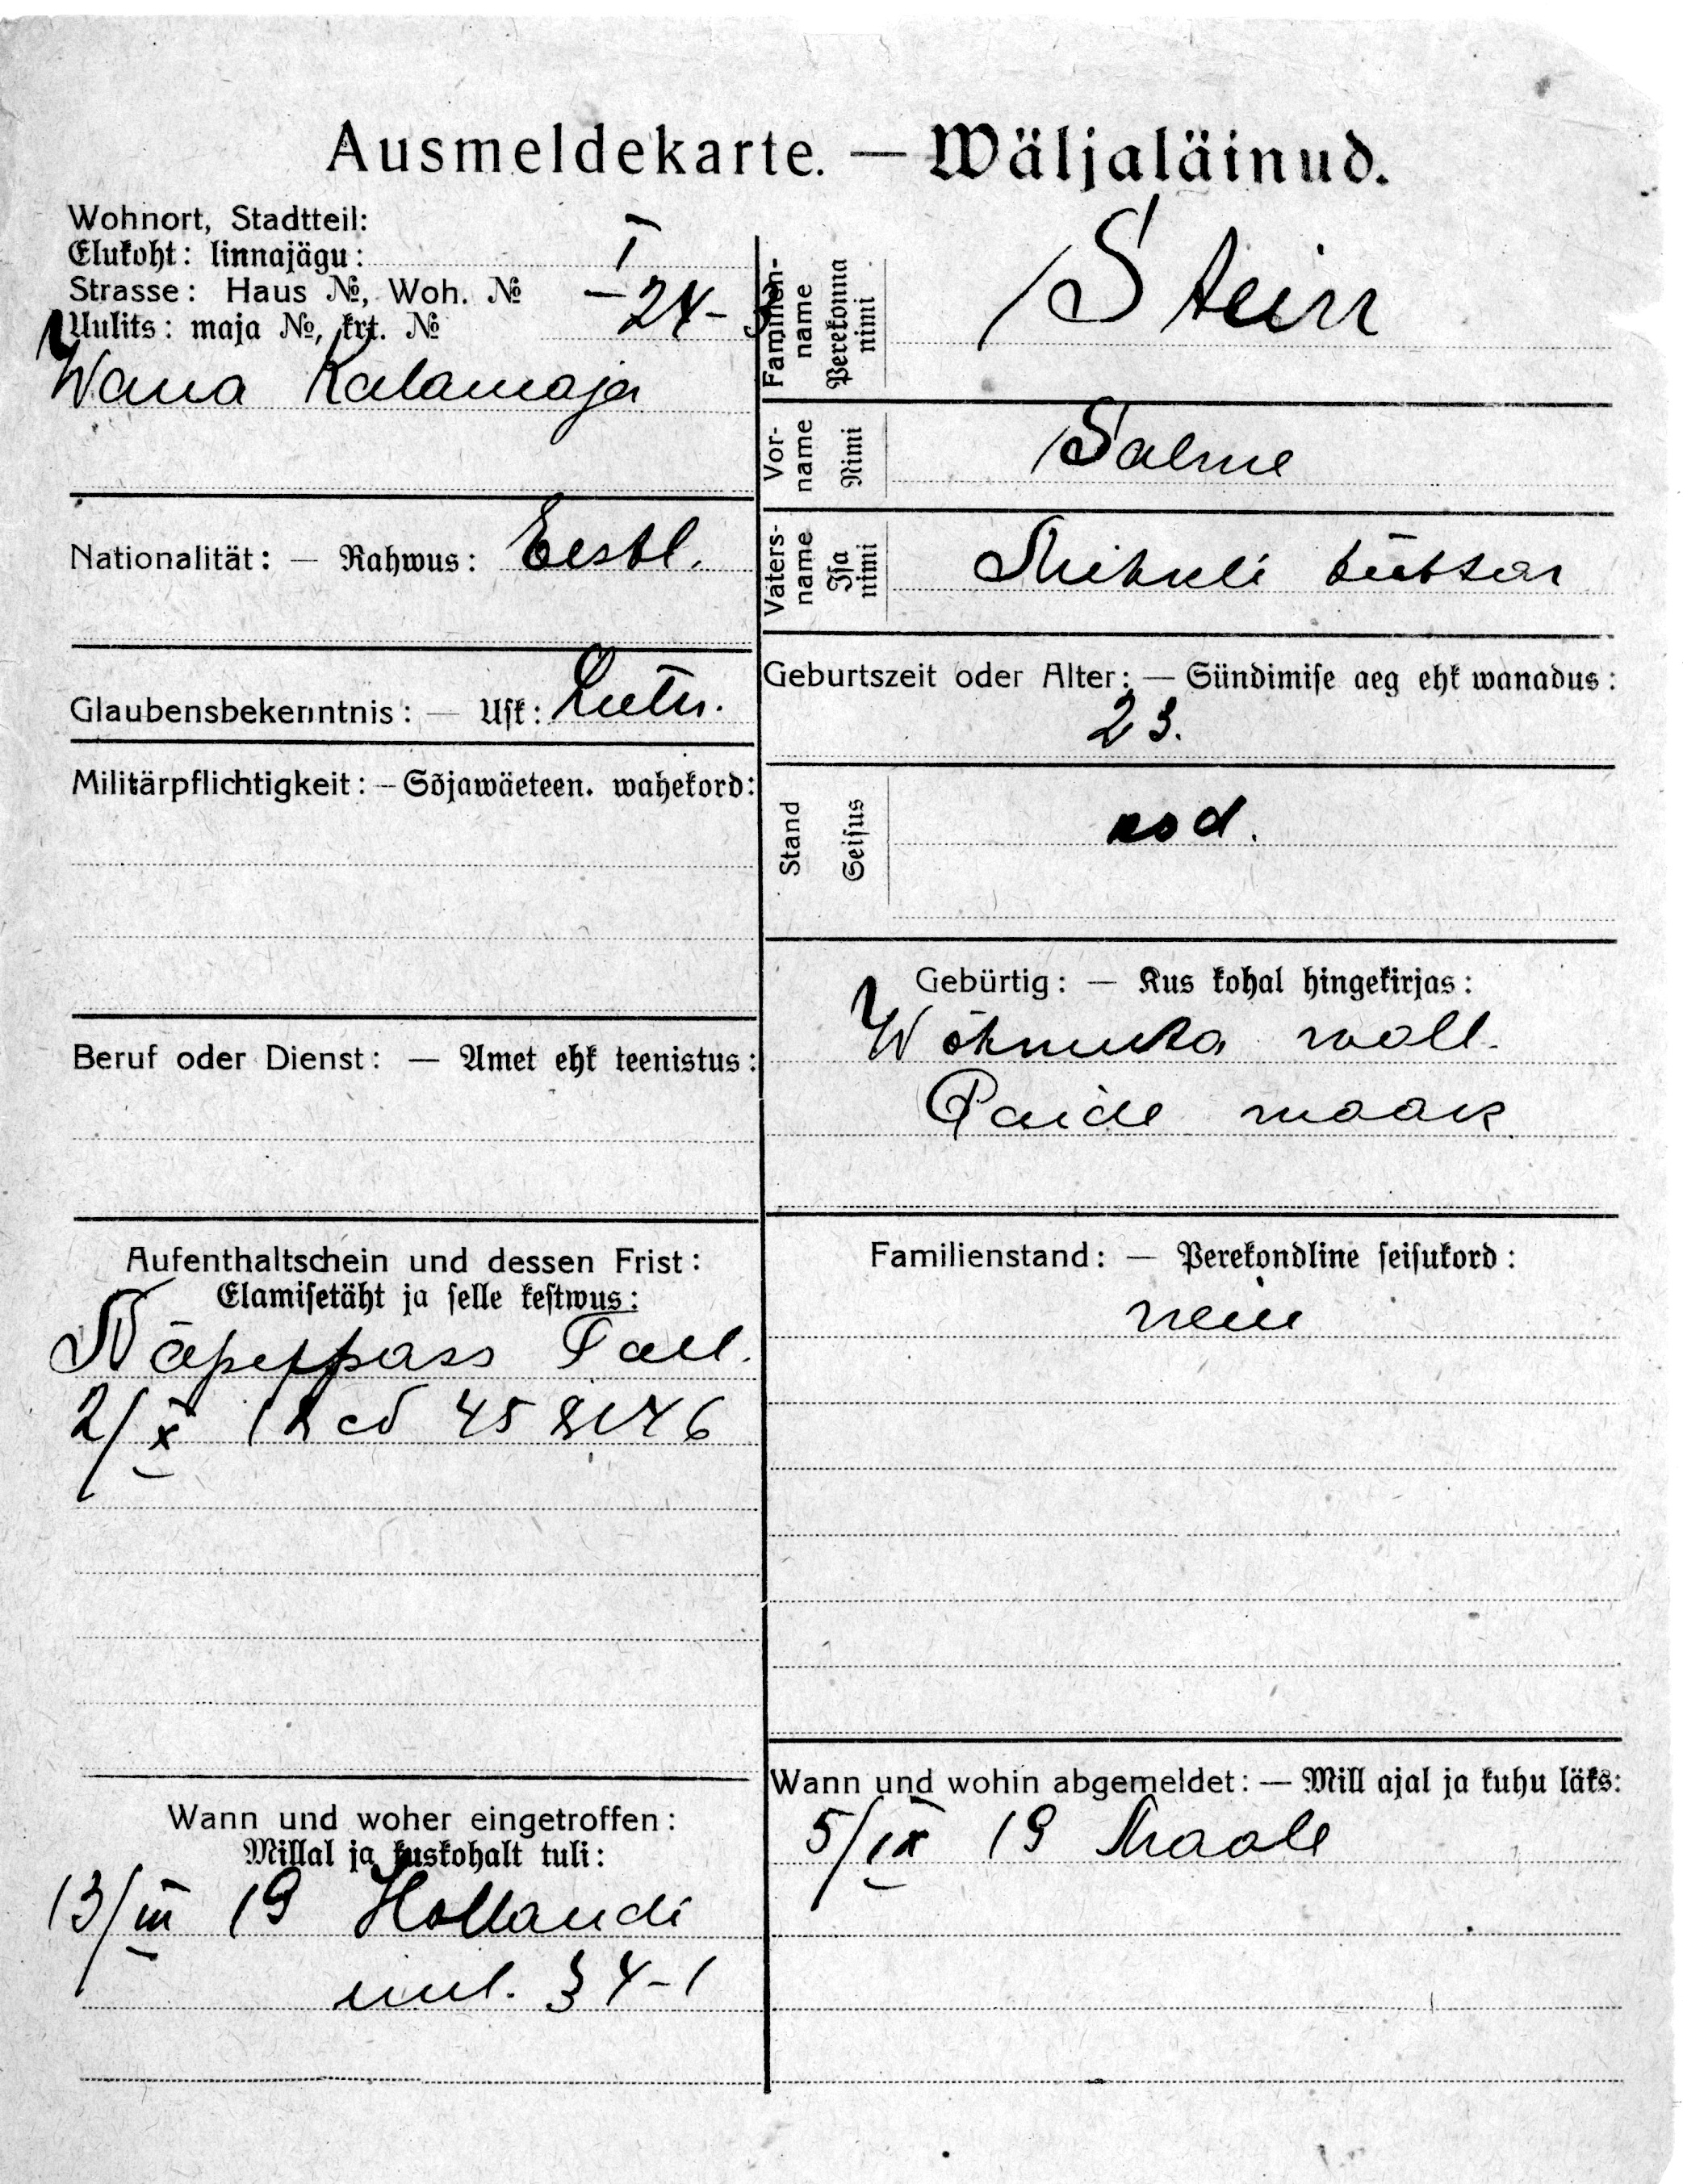 Ausmeldekarte. — Wäljaläinud.
Wohnort, Stadtteil:
Elukoht: linnajägu: I
Strasse: Haus №, Woh. № — 24 - 3
Uulits: maja №, krt. №
Wana Kalamaja
Nationalität: — Rahwus: Eestl.
Glaubensbekenntnis: — Usk: Luth.
Militärpflichtigkeit: — Sõjawäeteen. wahekord:
Beruf oder Dienst: — Amet ehk teenistus:
Aufenthaltschein und dessen Frist:
Elamisetäht ja selle kestwus:
Näpuppass Tall.
2/X 18 45
Wann und woher eingetroffen:
Millal ja kuskohalt tuli:
13/III 19 Hollandi
uul. 34-1
Familien-name Perekonna nimi
Stein
Vor-name Nimi
Salme
Vaters-name Isa nimi
Mihkli tütar
Geburtszeit oder Alter: — Sündimise aeg ehk wanadus:
23.
Stand Seisus
kod.
Gebürtig: — Kus kohal hingekirjas:
Wõhmuta wall.
Paide maak.
Familienstand: — Perekondline seisukord:
neiu
Wann und wohin abgemeldet: — Mill ajal ja kuhu läks:
5/IX 19 Maale